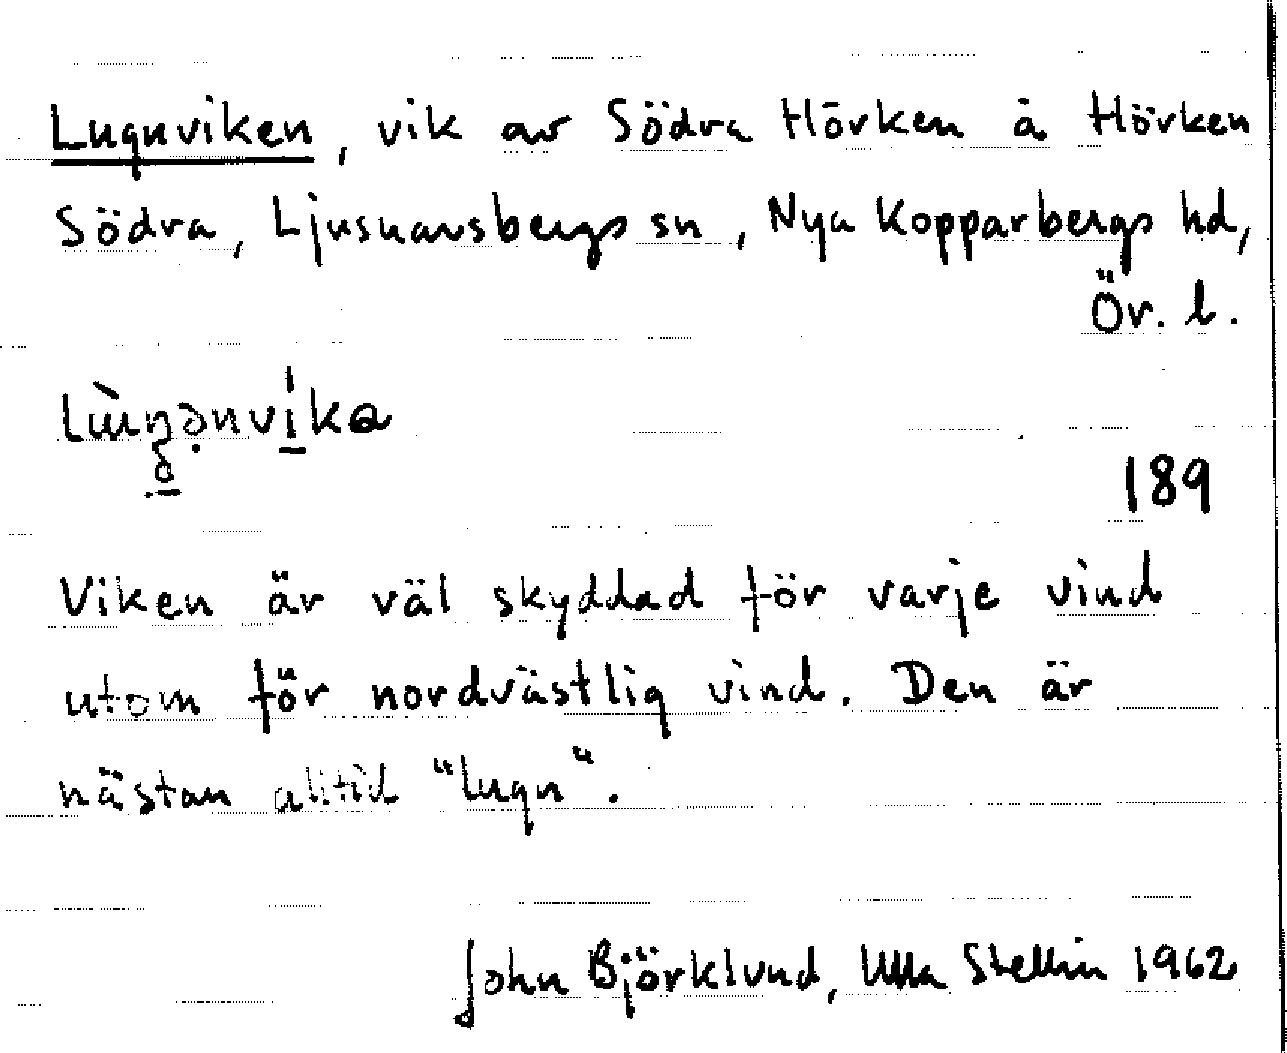 Lugnviken, vik av Södra Hörken å Hörken
Södra, Ljusnarsbergs sn, Nya Kopparbergs hd,
Ör. l.
189
Viken är väl skyddad för varje vind
utom för nordvästlig vind. Den är
nästan alltid "lugn".
John Björklund, Ulla Stellin 1962